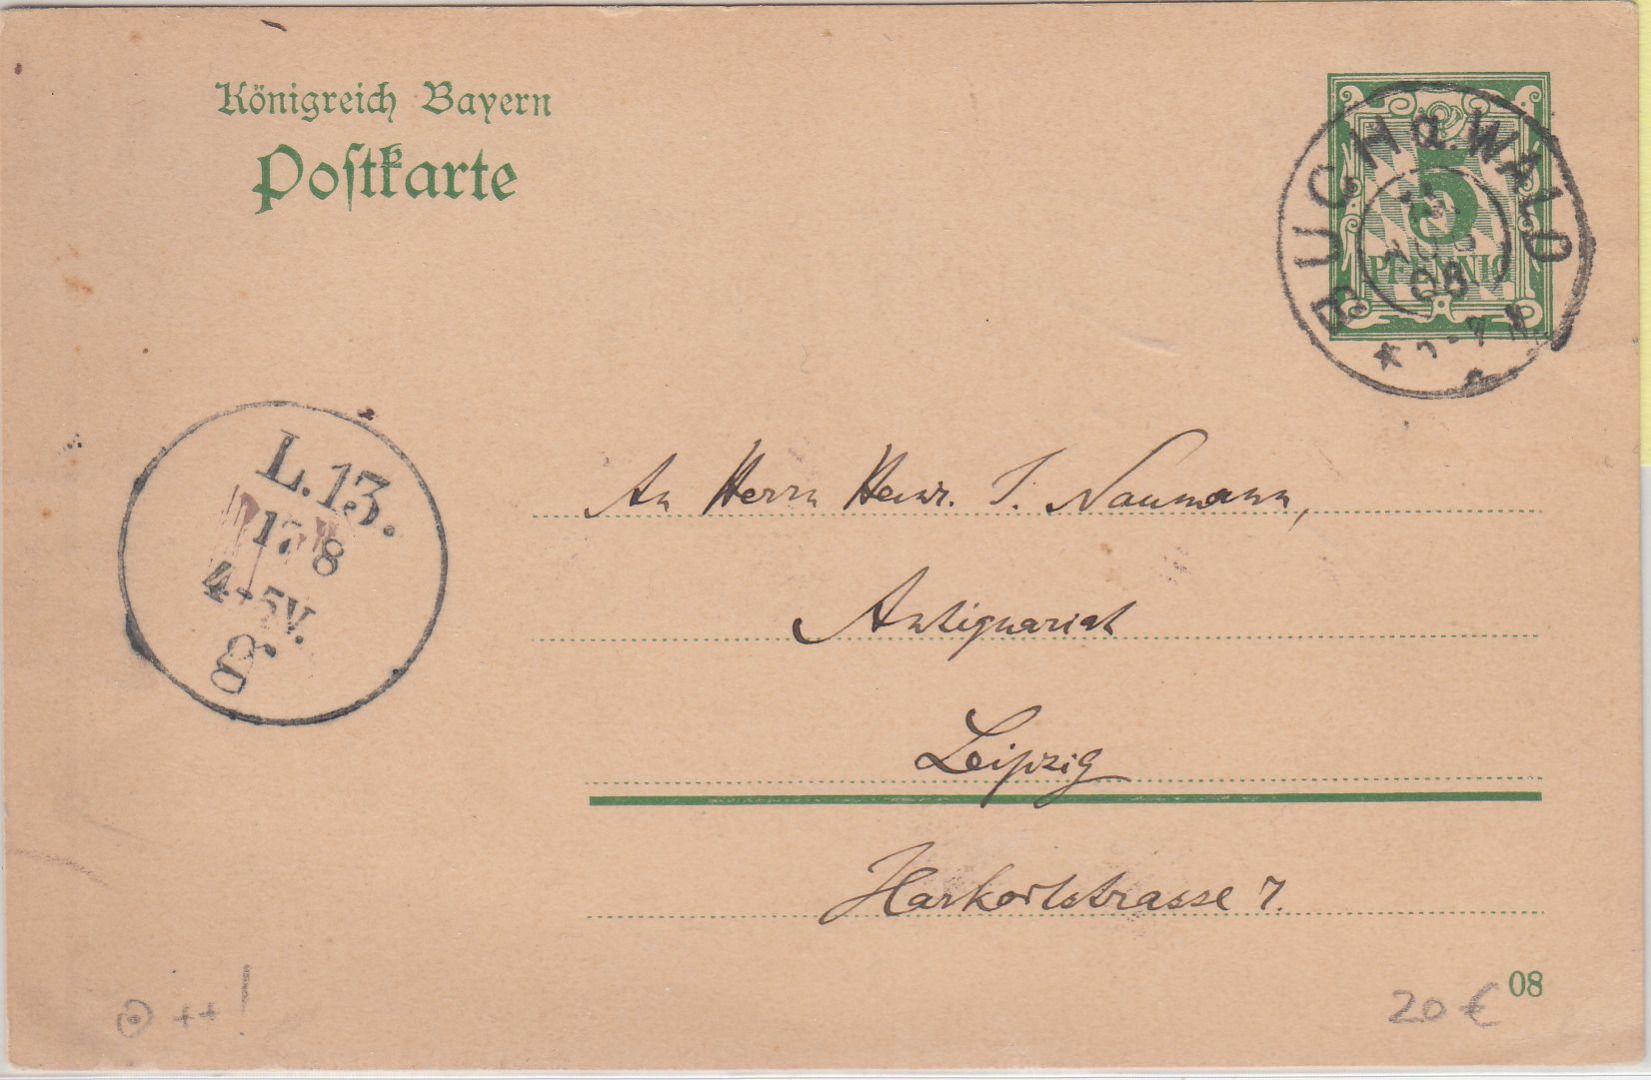 Königreich Bayern
Postkarte
5
PFENNIG
BUCH a. WALD
08
L. 13.
17 8
4-5V.
8.
An Herrn Heinr. J. Naumann,
Antiquariat
Leipzig
Harkortstrasse 7.
08
++!
20 €